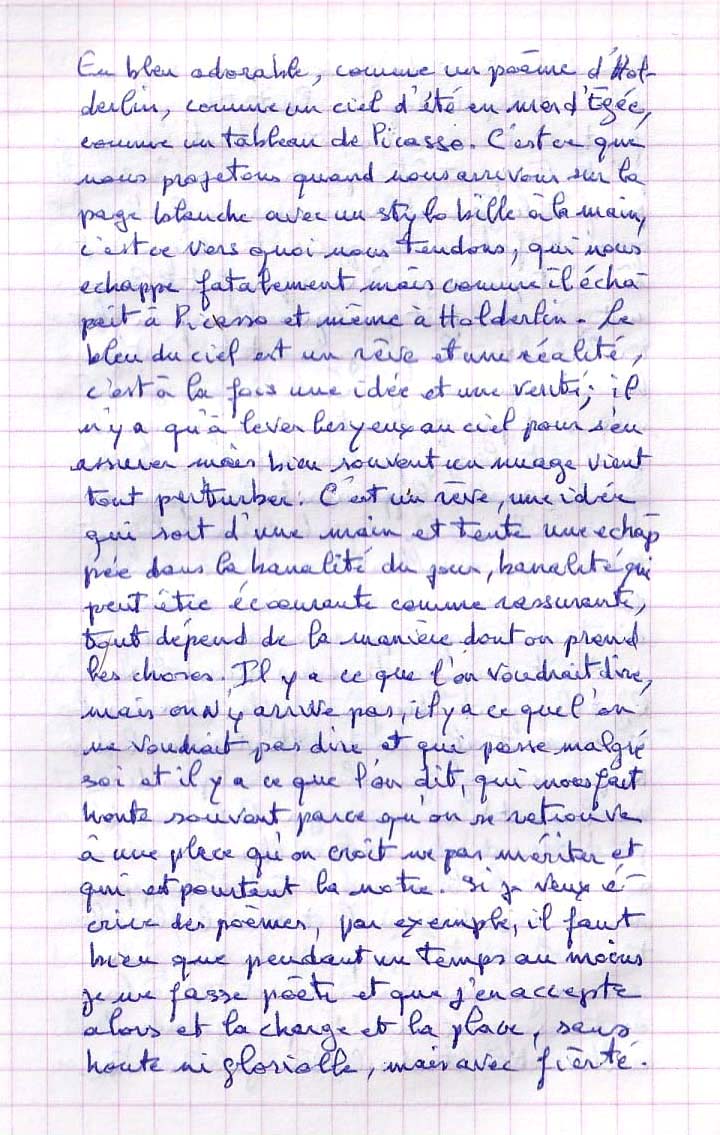 En bleu adorable, comme un poème d'Hol-
derlin, comme un ciel d'été en mer d'Egée,
comme un tableau de Picasso. C'est ce que
nous projetons quand nous arrivons sur la
page blanche avec un stylo bille à la main,
c'est ce vers quoi nous tendons, qui nous
echappe fatalement mais comme il écha-
pait à Picasso et même à Holderlin. Le
bleu du ciel est un rêve et une réalité,
c'est à la fois une idée et une verité; il
n'y a qu'à lever les yeux au ciel pour s'en
assurer mais bien souvent un nuage vient
tout perturber. C'est un rêve, une idée
qui sort d'une main et tente une echap
pée dans la banalité du jour, banalité qui
peut être écoeurante comme rassurante,
tout dépend de la manière dont on prend
les choses. Il y a ce que l'on voudrait dire,
mais on n'y arrive pas, il y a ce que l'on
ne voudrait pas dire et qui passe malgré
soi et il y a ce que l'on dit, qui nous fait
honte souvent parce qu'on se retrouve
à une place qu'on croit ne pas mériter et
qui est pourtant la notre. Si je veux é-
crire des poèmes, par exemple, il faut
bien que pendant un temps au moins
je me fasse poète et que j'en accepte
alors et la charge et la place, sans
honte ni gloriolle, mais avec fierté.